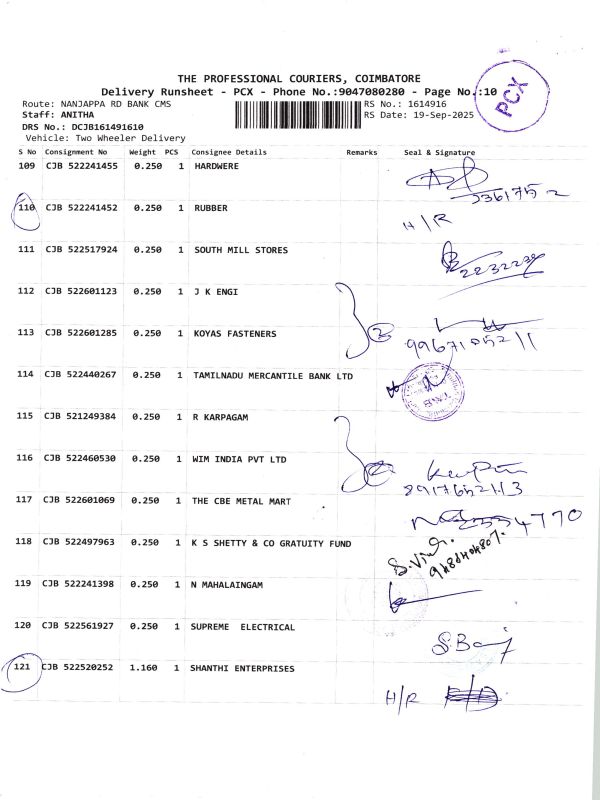 THE PROFESSIONAL COURIERS, COIMBATORE
Delivery Runsheet - PCX - Phone No.:9047080280 - Page No.:10
PCX
Route: NANJAPPA RD BANK CMS
RS No.: 1614916
Staff: ANITHA
RS Date: 19-Sep-2025
DRS No.: DCJB161491610
Vehicle: Two Wheeler Delivery
S No Consignment No Weight PCS Consignee Details Remarks Seal & Signature
109 CJB 522241455 0.250 1 HARDWERE
110 CJB 522241452 0.250 1 RUBBER H/R
111 CJB 522517924 0.250 1 SOUTH MILL STORES
112 CJB 522601123 0.250 1 J K ENGI
113 CJB 522601285 0.250 1 KOYAS FASTENERS 2
114 CJB 522440267 0.250 1 TAMILNADU MERCANTILE BANK LTD
115 CJB 521249384 0.250 1 R KARPAGAM
116 CJB 522460530 0.250 1 WIM INDIA PVT LTD
117 CJB 522601069 0.250 1 THE CBE METAL MART
118 CJB 522497963 0.250 1 K S SHETTY & CO GRATUITY FUND
119 CJB 522241398 0.250 1 N MAHALAINGAM
120 CJB 522561927 0.250 1 SUPREME ELECTRICAL
121 CJB 522520252 1.160 1 SHANTHI ENTERPRISES
H/R